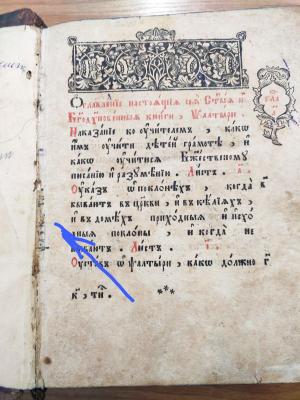 Оглавле́нїе настоѧ́щїѧ сеѧ̀ Ст҃ы́ѧ и҆
Бг҃одꙋхнове́нныѧ кни́ги , Ѱалты́ри .
Наказа́нїе ко ᲂу҆чи́телемъ , ка́кѡ
и҆̀мъ ᲂу҆чи́ти дѣте́й гра́мотѣ , и҆
ка́кѡ ᲂу҆чи́тисѧ бж҃е́ственомꙋ
писа́нїю и҆ разꙋмѣ́нїю . Ли́стъ . а҃
Оу҆ка́зъ ѡ҆ покло́нѣхъ , когда̀
быва́ютъ в̾ цр҃кви , и҆ в̾ ке́лїѧхъ ,
и҆ в̾ домѣ́хъ прихо́дныѧ и҆ и҆схо́
дныѧ покло́ны , и҆ когда̀ не
быва́ютъ . Ли́стъ .
Оу҆ста́въ ѡ҆ ѱалты́ри , ка́кѡ до́лжно